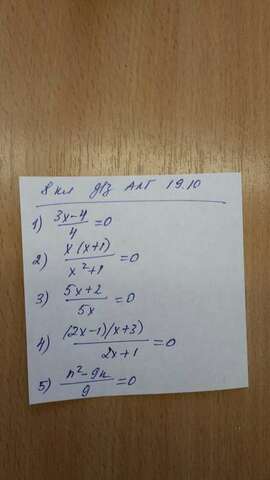 8 кл д/з Алг 19.10
1) (3x-4)/4 = 0
2) x(x+1)/(x²+1) = 0
3) (5x+2)/5x = 0
4) (2x-1)(x+3)/(2x+1) = 0
5) (n²-9n)/9 = 0